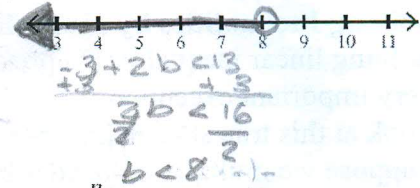 3 4 5 6 7 8 9 10 11
-3+2b<13
+3 +3
2b < 16
2 2
b<8
n